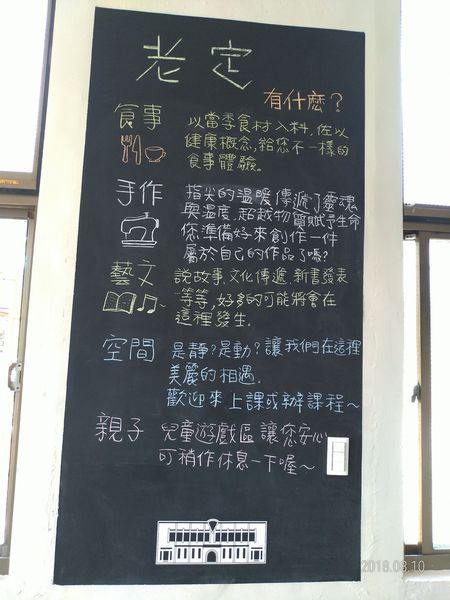 老定
有什麼?
食事
以當季食材入料,佐以
健康概念,給您不一樣的
食事體驗。
手作
指尖的溫暖傳遞了靈魂
與溫度,超越物質賦予生命
您準備好來創作一件
屬於自己的作品了嗎?
藝文
說故事、文化傳遞、新書發表
等等,好多的可能將會在
這裡發生.
空間
是靜?是動?讓我們在這裡
美麗的相遇.
歡迎來上課或辦課程~
親子
兒童遊戲區讓您安心
可稍作休息一下喔~
2018.03.10